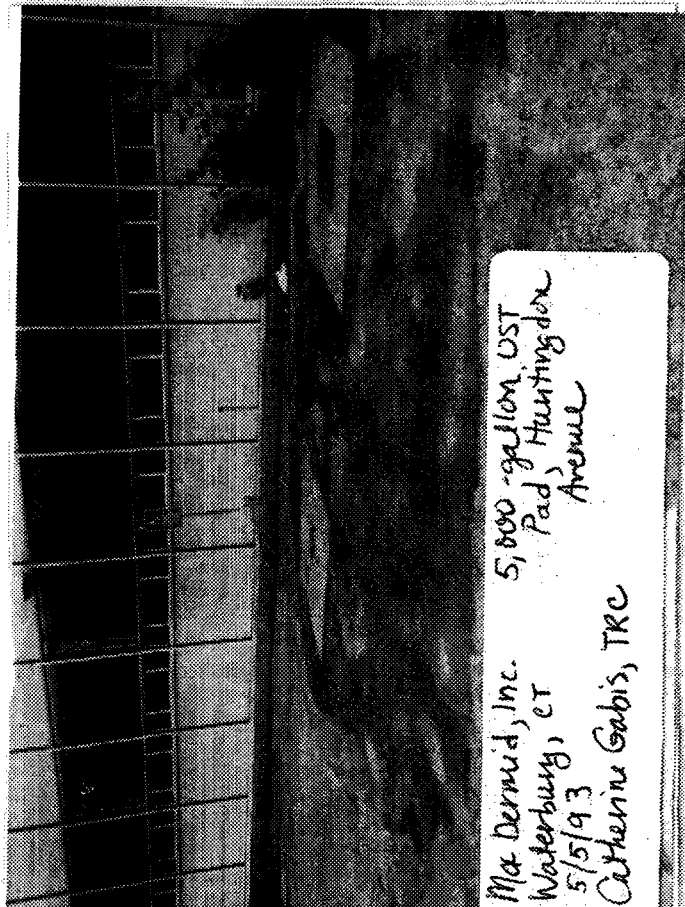 Mac Dermid, Inc.
Waterbury, CT
5/5/93
Catherine Gabis, TRC
5,000-gallon UST
Pad, Huntingdon
Avenue